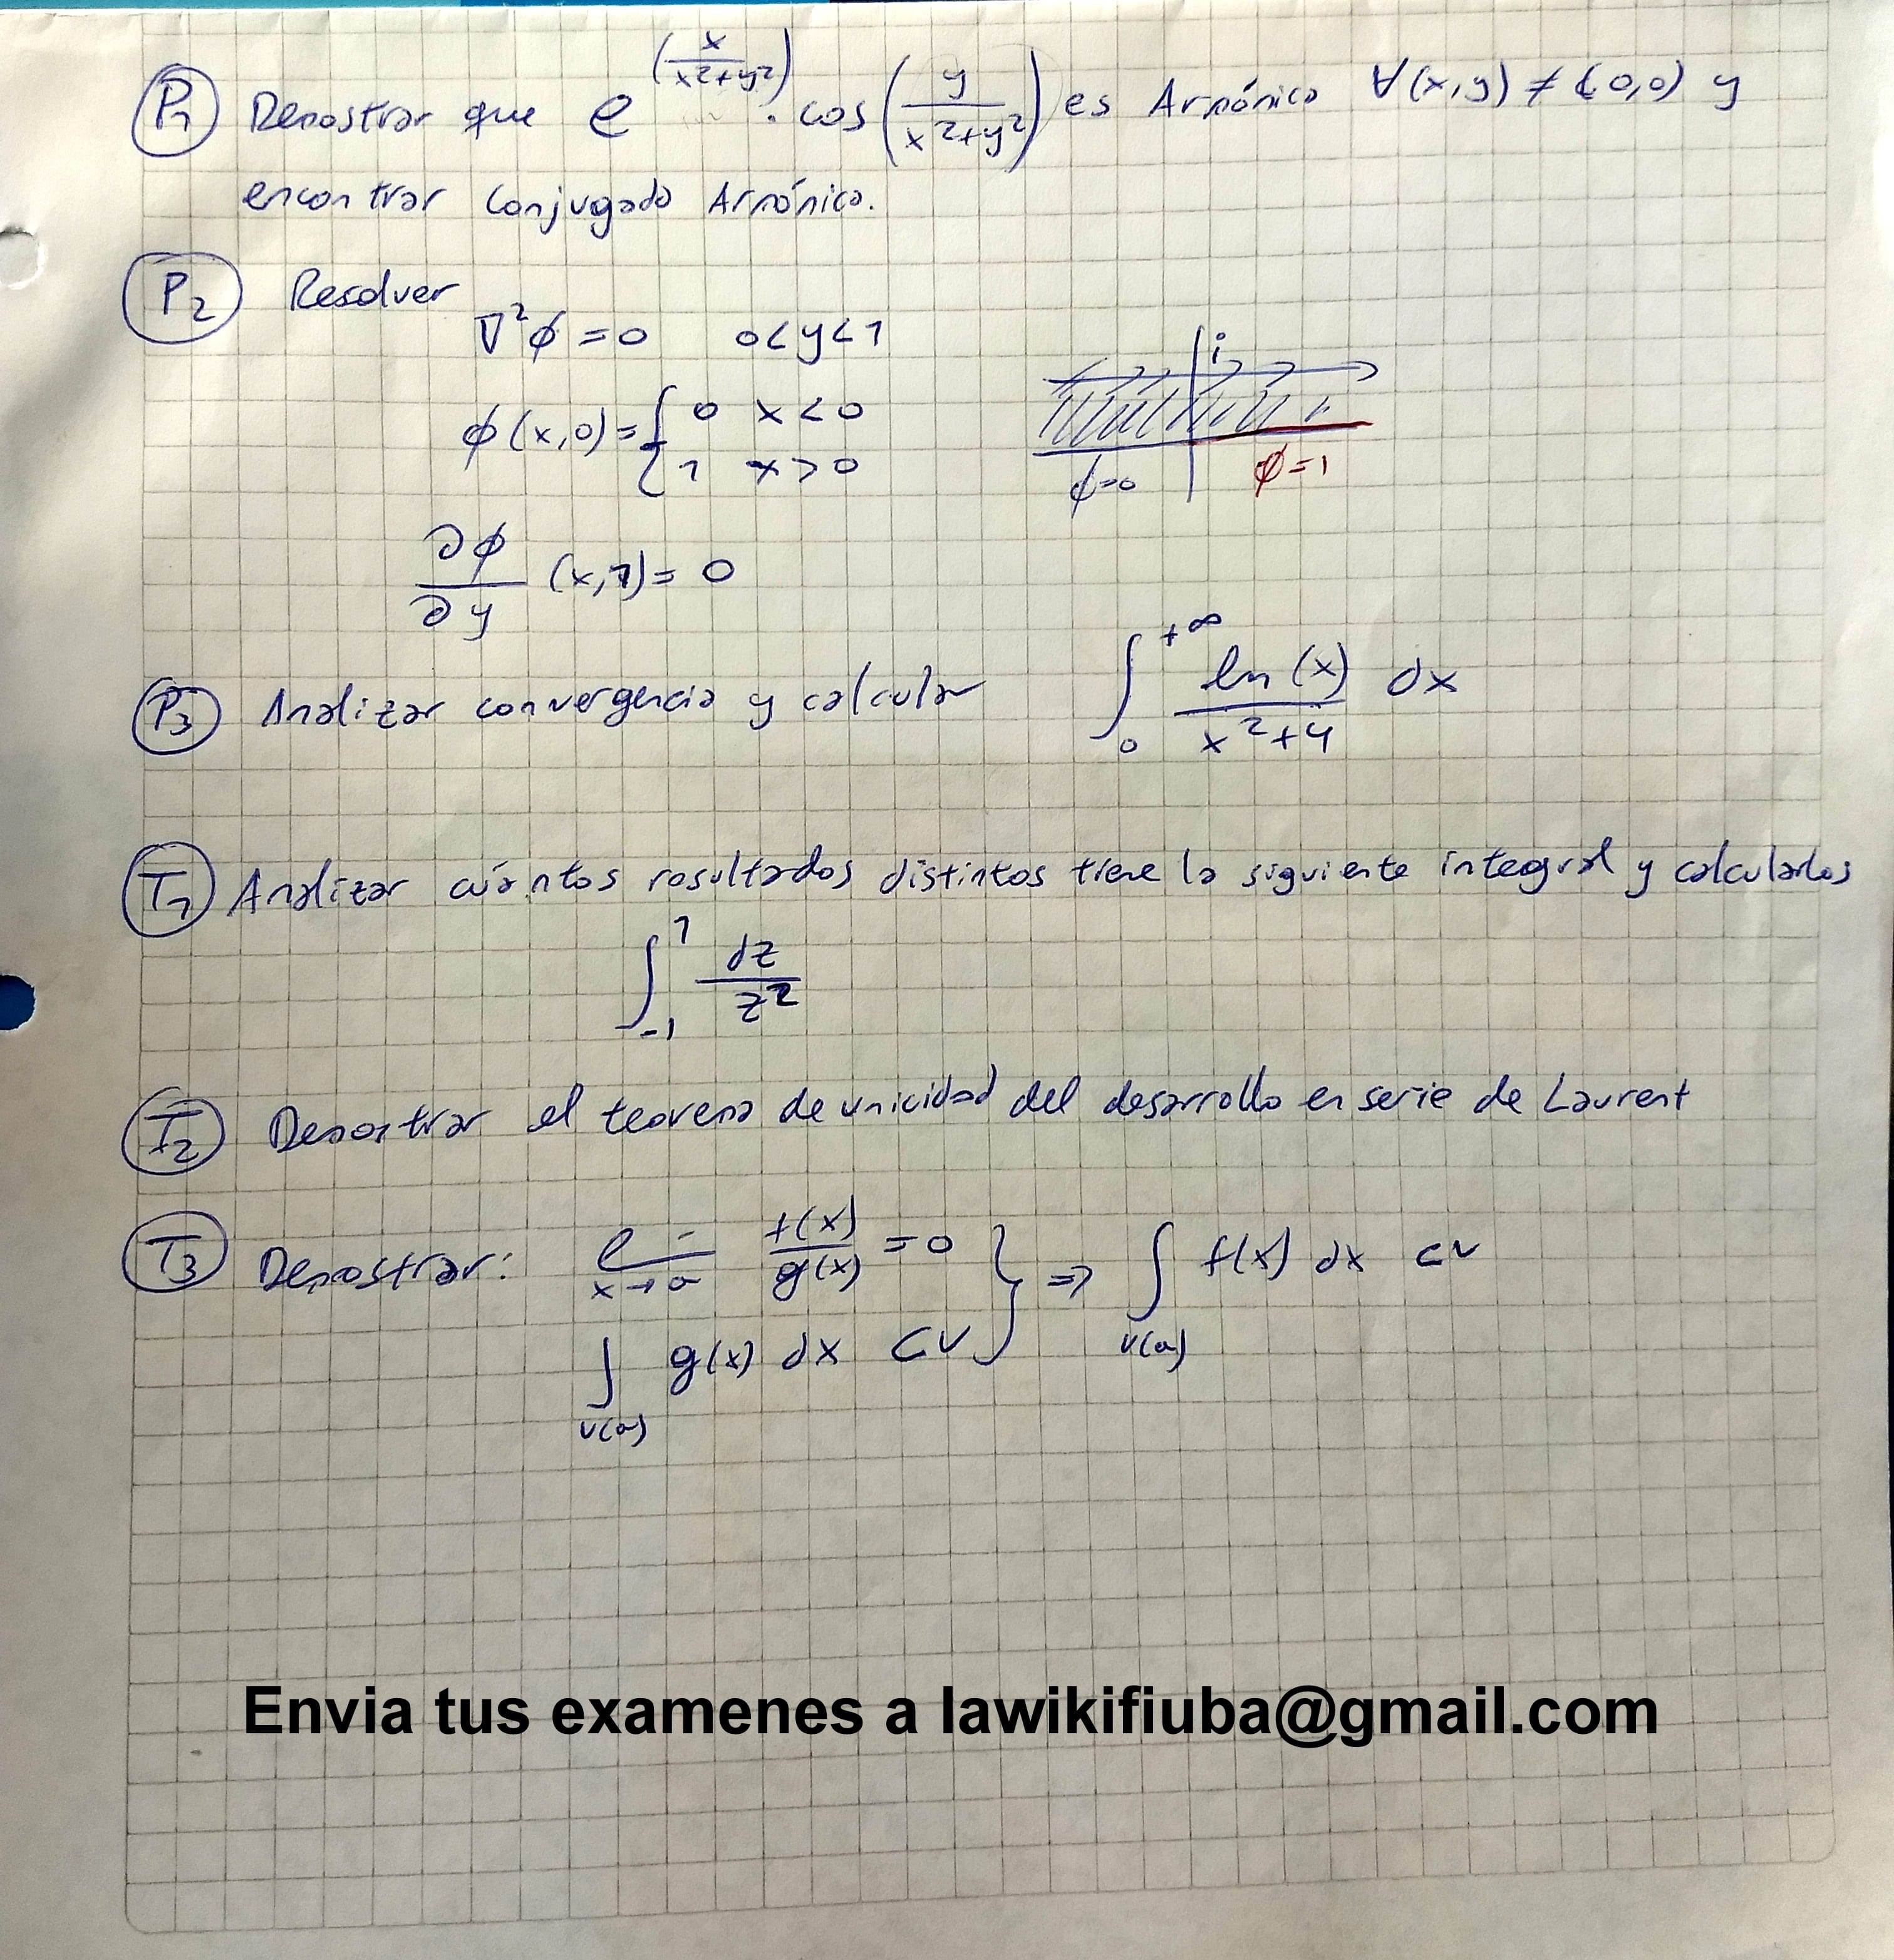 P1 Demostrar que e^(x/(x²+y²)) · cos(y/(x²+y²)) es Armónico ∀(x,y) ≠ (0,0) y
encontrar conjugado Armónico.
P2 Resolver
∇²φ = 0   0<y<1
φ(x,0) = { 0   x<0
1   x>0
i
φ=0   φ=1
∂φ/∂y (x,1) = 0
P3 Analizar convergencia y calcular ∫₀^{+∞} ln(x)/(x²+4) dx
T1 Analizar cuántos resultados distintos tiene la siguiente integral y calcularlos
∫₋₁^1 dz/z²
T2 Demostrar el teorema de unicidad del desarrollo en serie de Laurent
T3 Demostrar: x→a f(x)/g(x) = 0 } ⇒ ∫_{V(a)} f(x) dx CV
∫_{V(a)} g(x) dx CV
Envia tus examenes a lawikifiuba@gmail.com